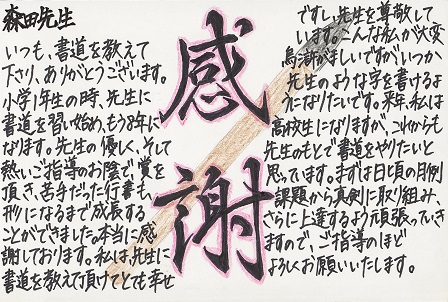 森田先生
いつも、書道を教えて
下さり、ありがとうございます。
小学1年生の時、先生に
書道を習い始め、もう8年に
なります。先生の優しく、そして
熱いご指導のお陰で、賞を
頂き、苦手だった行書も、
形になるまで成長する
ことができました。本当に感
謝しております。私は、先生に
書道を教えて頂けてとても幸せ
感謝
ですし、先生を尊敬して
います。こんな私が大変
烏滸がましいですが、いつか
先生のような字を書けるよ
うになりたいです。来年、私は
高校生になりますが、これからも
先生のもとで書道をやりたいと
思っています。まずは日頃の月例
課題から真剣に取り組み、
さらに上達するよう頑張っていき
ますので、ご指導のほど
よろしくお願いいたします。